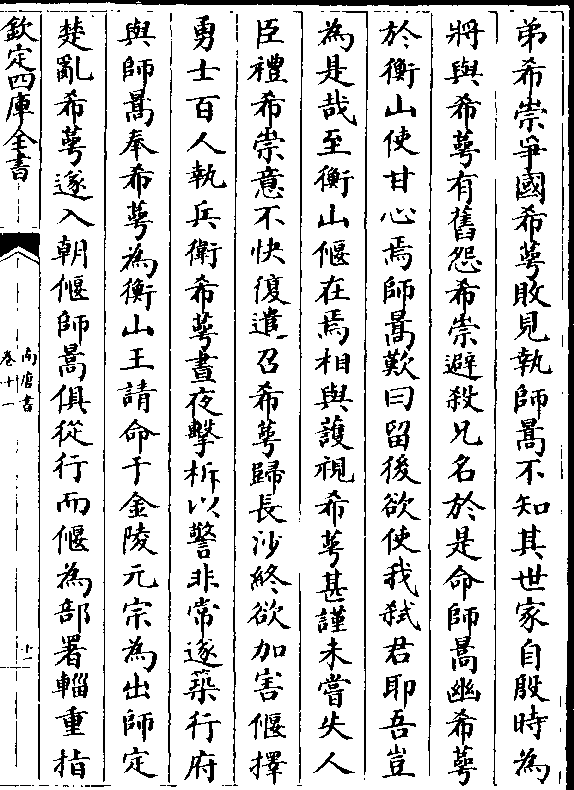 弟希崇爭國希萼敗見執師暠不知其世家自殷時為
將與希萼有舊怨希崇避殺兄名於是命師暠幽希萼
於衡山使甘心焉師暠歎曰留後欲使我弑君耶吾豈
為是哉至衡山偃在焉相與護視希萼甚謹未嘗失人
臣禮希崇意不快復遣召希萼歸長沙終欲加害偃擇
勇士百人執兵衛希萼晝夜擊柝以警非常遂築行府
與師暠奉希萼為衡山王請命于金陵元宗為出師定
楚亂希萼遂入朝偃師暠俱從行而偃為部署輜重指
欽定四庫全書
南唐書
卷十一
十一